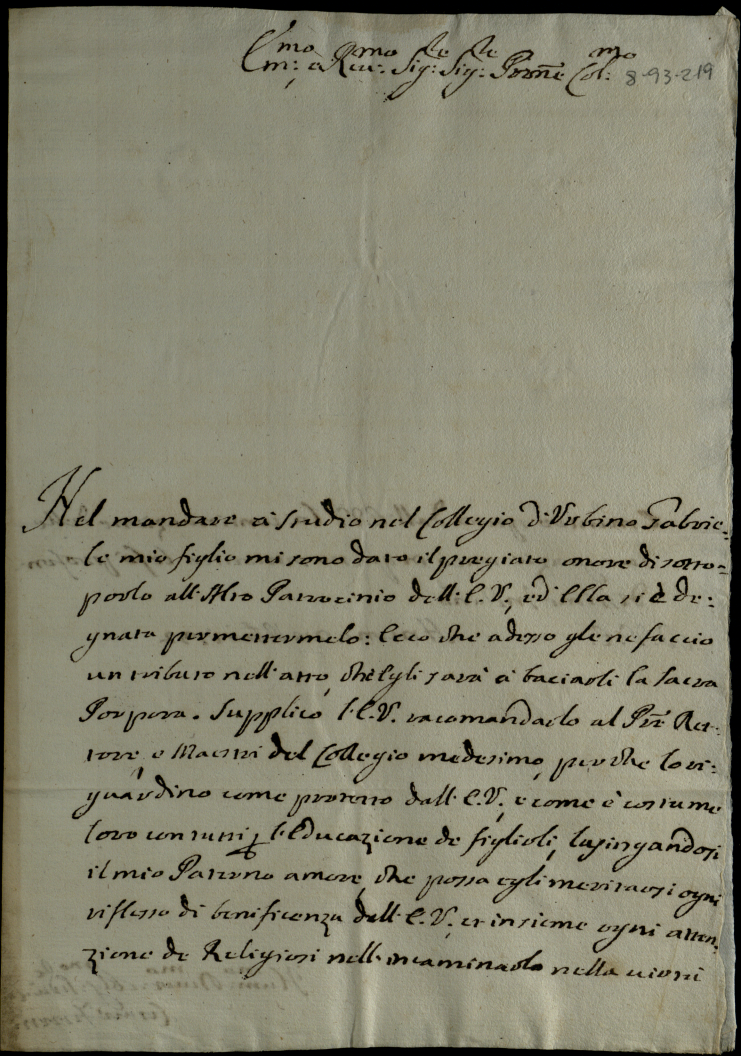 Em:mo e Rev:mo Sig:re Sig:re Prone Col:mo 8-93-219
Nel mandare à studio nel Collegio d'Urbino Gabrie=
le mio figlio mi sono dato il pregiato onore di sotto=
porlo all'Alto Patrocinio dell'E.V., ed Ella si è de=
gnata permettermelo: Ecco che adesso gle ne faccio
un tributo nell'atto, ch'Egli sarà à baciarli la Sacra
Porpora. Supplico l'E.V. racomandarlo al Pre Ret=
tore, e Maestri del Collegio medesimo, perche lo ri=
guardino come protetto dall'E.V., e come è costume
loro con tutti p l'Educazione de figlioli, lusingandosi
il mio Paterno amore, che possa egli meritarsi ogni
riflesso di beneficenza dell'E.V., et insieme ogni atten=
zione de Religiosi nell'incaminarlo nella